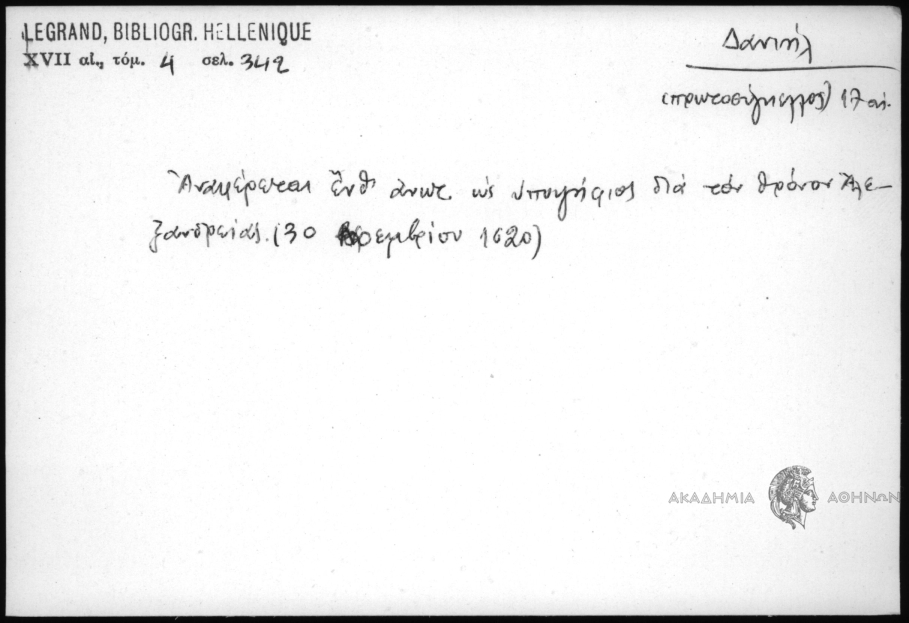 LEGRAND, BIBLIOGR. HELLENIQUE
XVII αἰ., τόμ. 4 σελ. 342
Δανιήλ
(πρωτοσύγκελλος) 17 αἰ.
Ἀναφέρεται ἔνθ' ἄνωτ. ὡς ὑποψήφιος διὰ τὸν θρόνον Ἀλε-
ξανδρείας. (30 1620)
ΑΚΑΔΗΜΙΑ ΑΘΗΝΩΝ